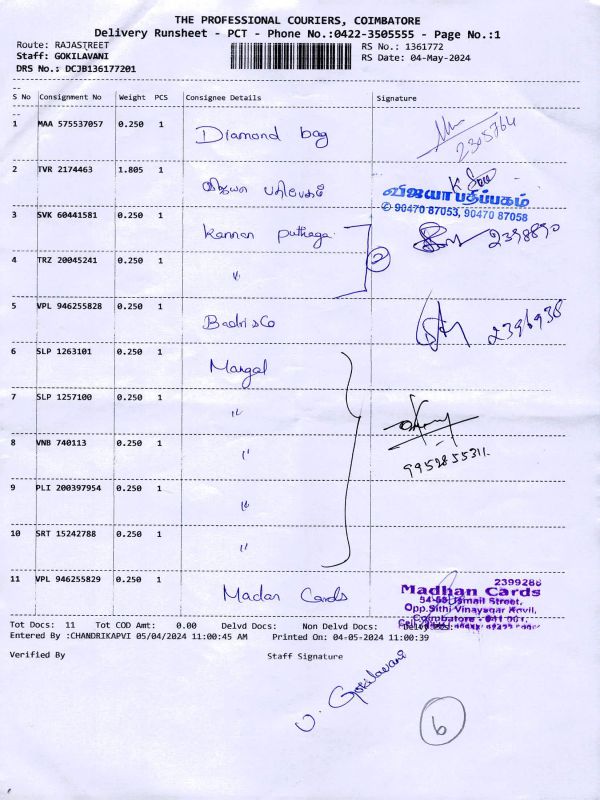 THE PROFESSIONAL COURIERS, COIMBATORE
Delivery Runsheet - PCT - Phone No.:0422-3505555 - Page No.:1
Route: RAJASTREET
RS No.: 1361772
Staff: GOKILAVANI
RS Date: 04-May-2024
DRS No.: DCJB136177201
S No Consignment No Weight PCS Consignee Details Signature
1 MAA 575537057 0.250 1 Diamond bag
2305764
2 TVR 2174463 1.805 1 விஜயா பதிப்பகம்
விஜயா பதிப்பகம்
✆ 90470 87053, 90470 87058
3 SVK 60441581 0.250 1 Kannan puthaga 2398890
2
4 TRZ 20045241 0.250 1 〃
5 VPL 946255828 0.250 1 Badri & Co 2396938
6 SLP 1263101 0.250 1 Mangal
7 SLP 1257100 0.250 1 〃
9952855311
8 VNB 740113 0.250 1 〃
9 PLI 200397954 0.250 1 〃
10 SRT 15242788 0.250 1 〃
11 VPL 946255829 0.250 1 Madan Cards
2399286
Madhan Cards
Ismail Street,
Opp.Sithi Vinayagar Kovil,
Coimbatore - 641 001.
Tot Docs: 11 Tot COD Amt: 0.00 Delvd Docs: Non Delvd Docs:
Entered By :CHANDRIKAPVI 05/04/2024 11:00:45 AM Printed On: 04-05-2024 11:00:39
Verified By Staff Signature
V. Gokilavani
6